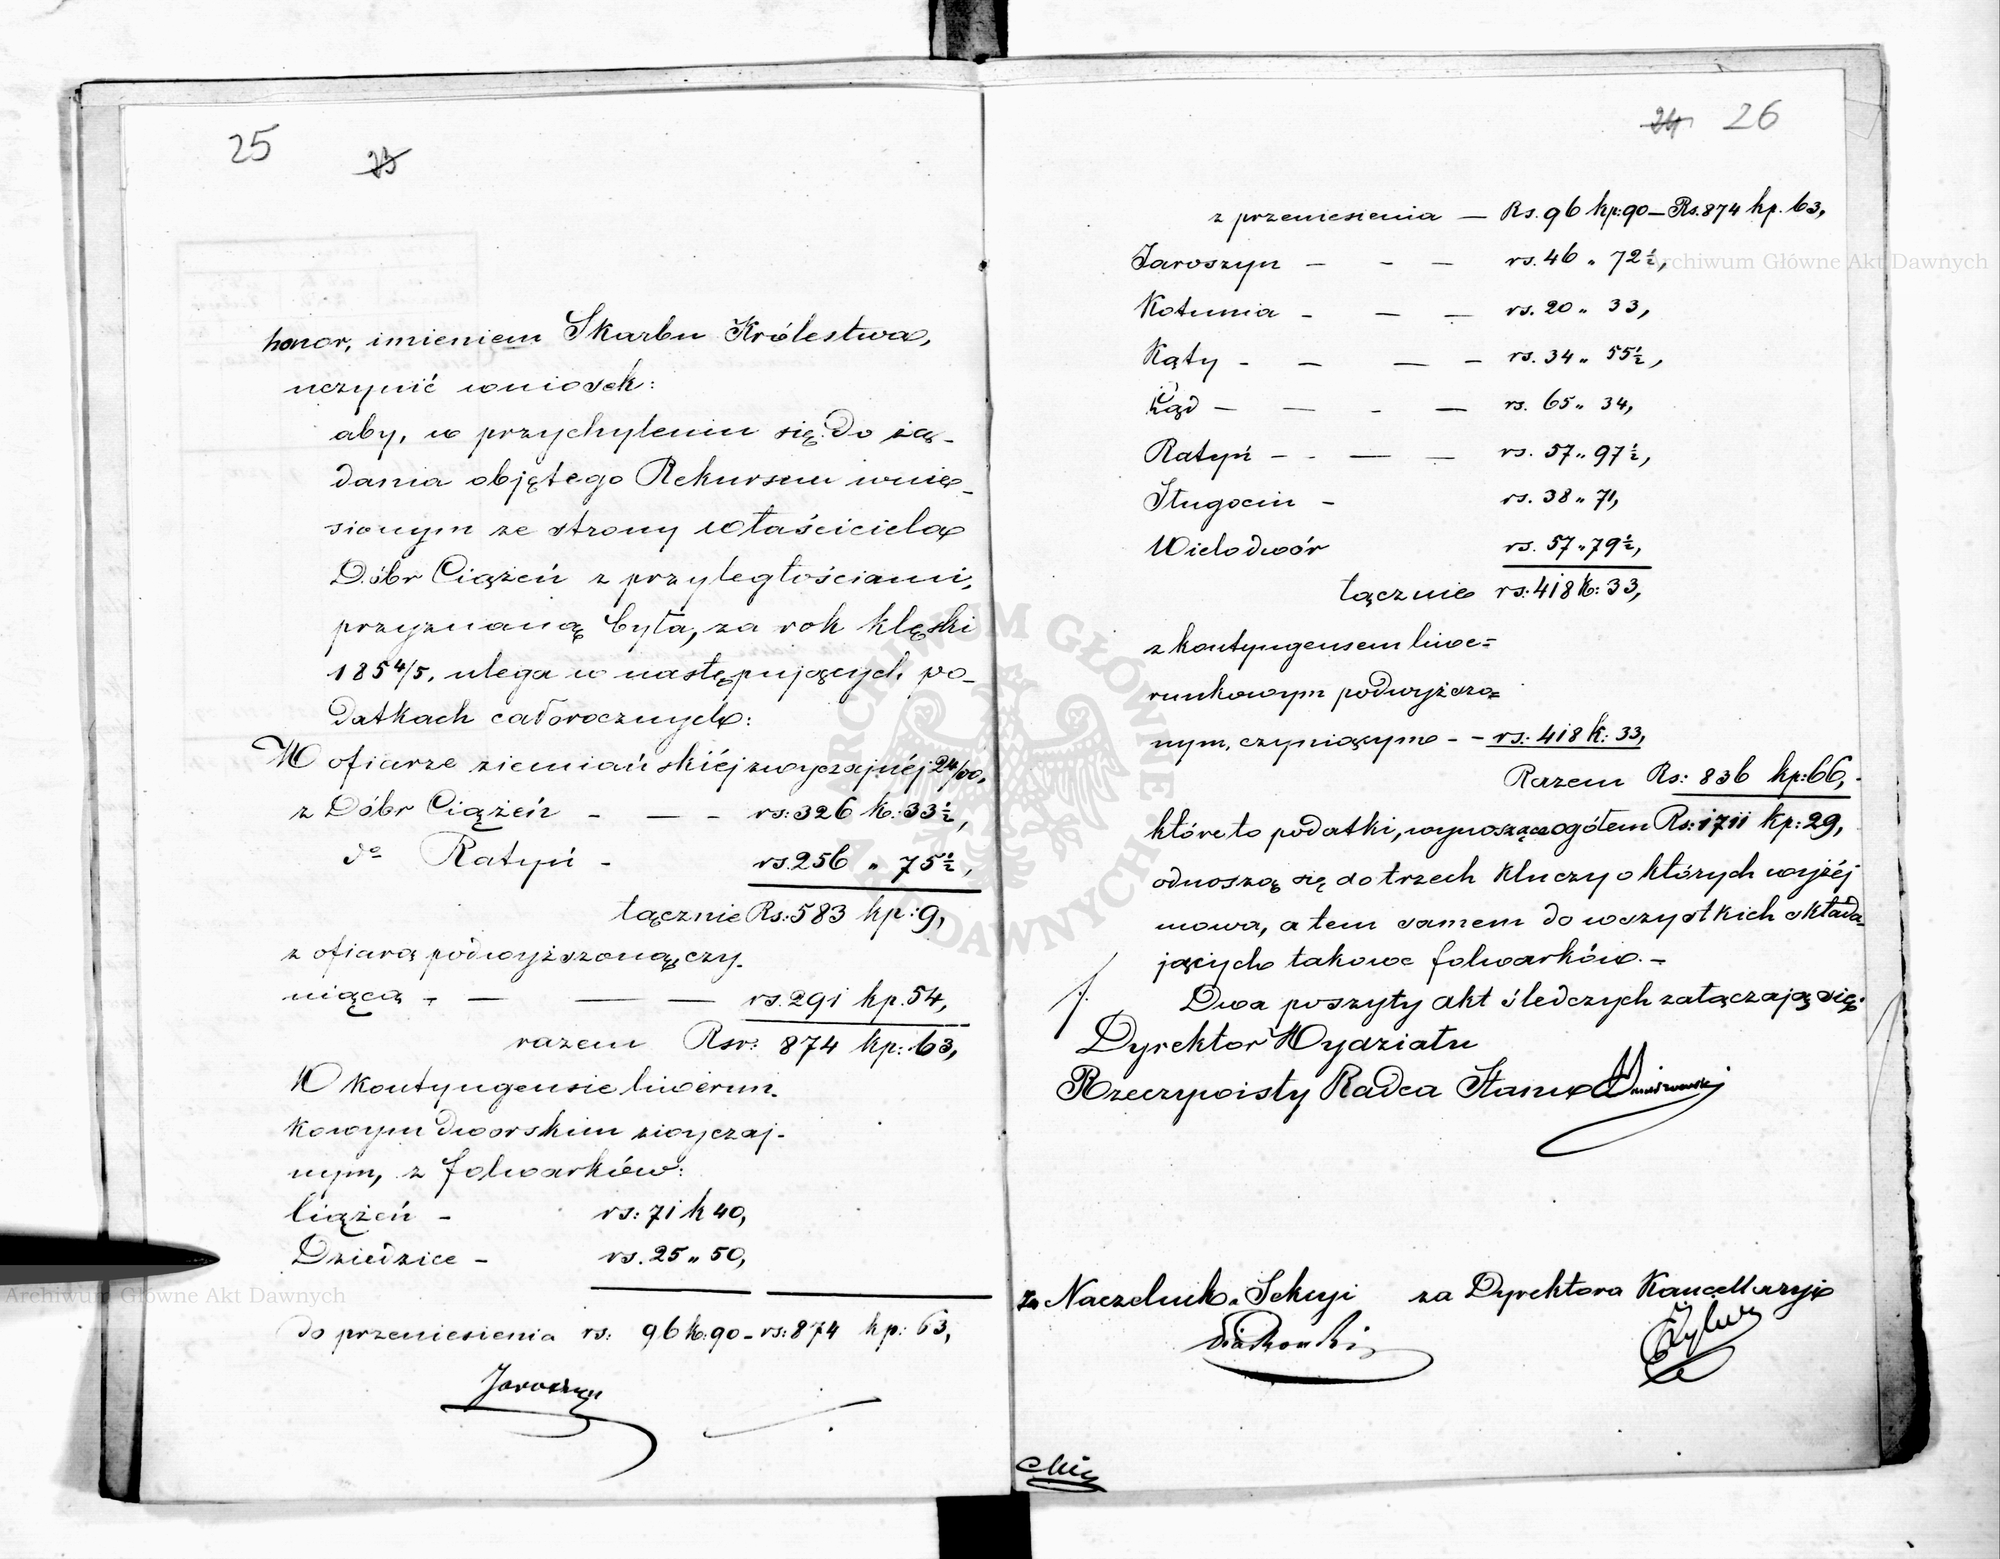 25 23
honor, imieniem Skarbu Królestwa,
uczynić wniosek:
aby, w przychyleniu się do żą-
dania objętego Rekursem wnie-
sionym ze strony właściciela
Dóbr Ciążeń z przyległościami,
przyznaną była, za rok klęski
1854/5, ulega w następujących po-
datkach całorocznych:
W ofiarze ziemiańskiéj zwyczajnéj 24/00,
z Dóbr Ciążeń - — - rs: 326 k: 33½,
do Ratyń - rs. 256 „ 75½,
łącznie Rs: 583 kp: 9,
z ofiarą podwyższoną, czy-
niącą - — — — rs. 291 kp. 54,
razem Rsr: 874 kp: 63,
W kontyngensie liwerun-
kowym dworskim zwyczaj-
nym, z folwarków:
Ciążeń - rs: 71 k 40,
Dziedzice - rs. 25 „ 50,
do przeniesienia rs: 96 k: 90 - rs: 874 kp: 63,
Jaroszyn
24 26
z przeniesienia — Rs. 96 kp: 90 — Rs. 874 kp. 63,
Jaroszyn — - — rs. 46 „ 72½,
Kotunia - — — rs. 20 „ 33,
Kąty - — — - rs. 34 „ 55½,
Ląd — — - — rs. 65 „ 34,
Ratyń — - — — rs. 57 „ 97½,
Sługocin - rs. 38 „ 71,
Wielodwór rs. 57 „ 79½,
łącznie rs: 418 k: 33,
z kontyngensem liwe=
runkowym podwyższo=
nym, czyniącym - - rs: 418 k: 33,
Razem Rs: 836 kp: 66,
które to podatki, wynoszące ogółem Rs: 1711 kp: 29,
odnoszą się do trzech kluczy o których wyżéj
mowa, a tem samem do wszystkich składa-
jących takowe folwarków. —
Dwa poszyty akt śledczych załączają się.
Dyrektor Wydziału
Rzeczywisty Radca Stanu
Za Naczelnika Sekcyi za Dyrektora Kancellaryi
Archiwum Główne Akt Dawnych
Archiwum Główne Akt Dawnych
ARCHIWUM GŁÓWNE AKT DAWNYCH